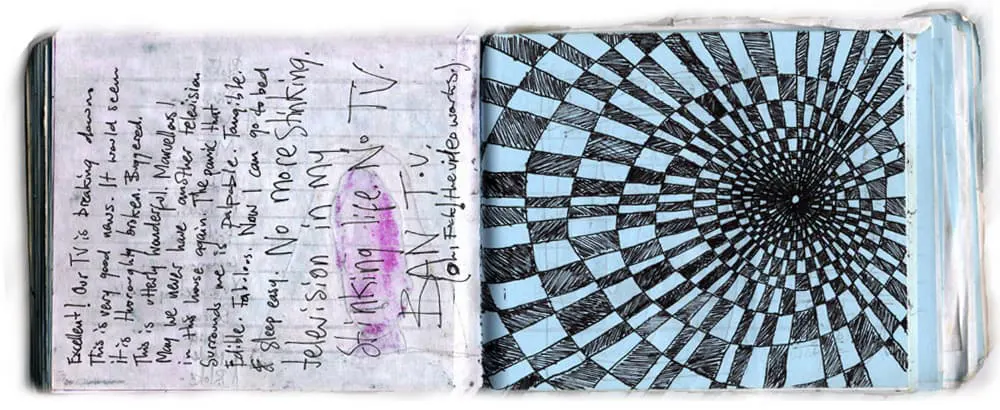 Excellent! Our TV is breaking down
This is very good news. It would seem
it is thoroughly broken. Buggered.
This is utterly wonderful. Marvellous!
May we never have another television
in this house again. The panic that
surrounds me is palpable. Tangible.
Edible. Fabulous. Now I can go to bed
& sleep easy. No more Stinking
television in my
Stinking life. No TV.
BAN T.V.
(oh, Fuck! the video works!)